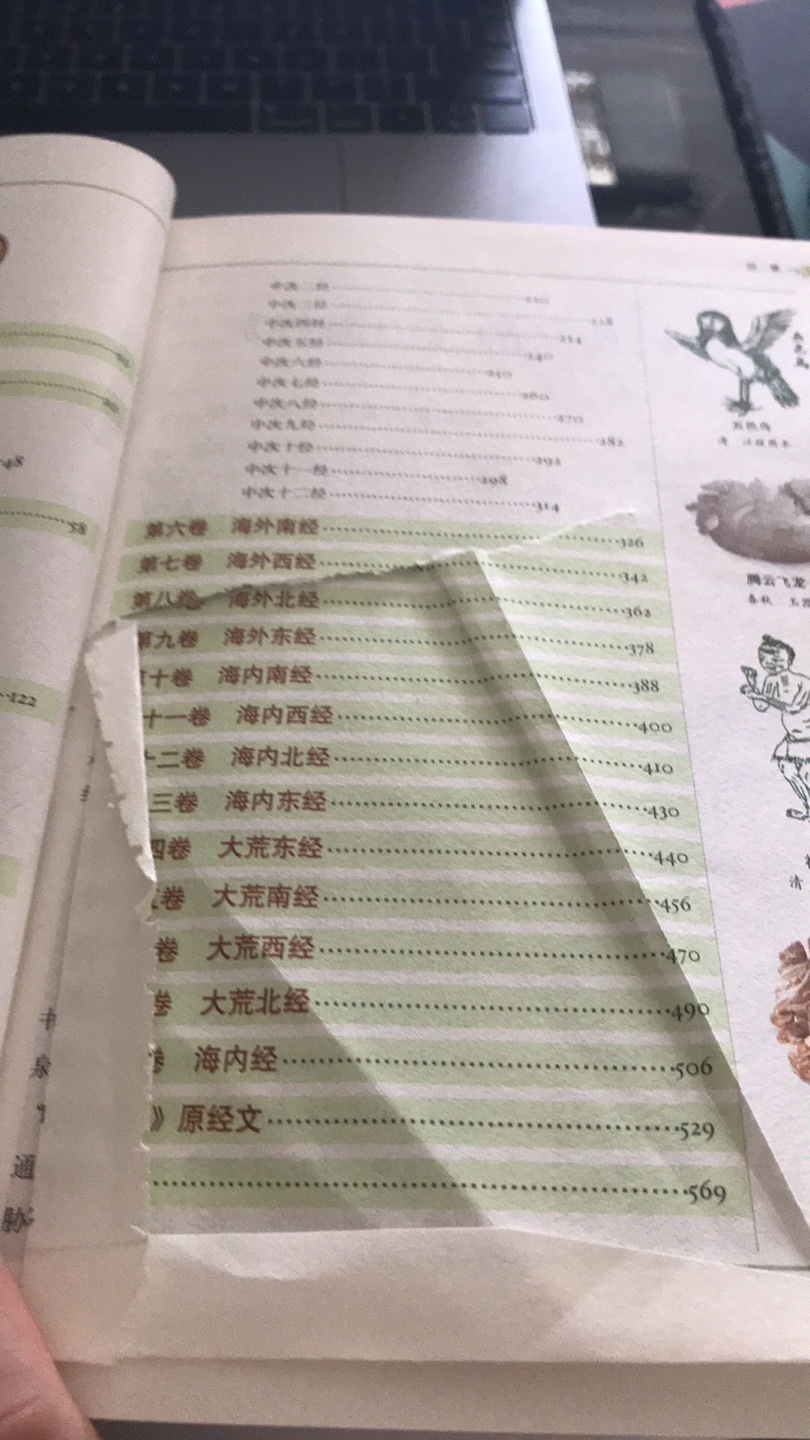 目录
48
58
122
中次二经
中次三经
中次四经
中次五经 234
中次六经 240
中次七经 250
中次八经 260
中次九经 270
中次十经 282
中次十一经 292
中次十二经 298
314
第六卷 海外南经 326
第七卷 海外西经 342
第八卷 海外北经 362
第九卷 海外东经 378
十卷 海内南经 388
十一卷 海内西经 400
十二卷 海内北经 410
三卷 海内东经 430
四卷 大荒东经 440
卷 大荒南经 456
卷 大荒西经 470
卷 大荒北经 490
海内经 506
》原经文 529
569
清 汪绂图本
腾云飞龙
春秋
清
泉
通
胁